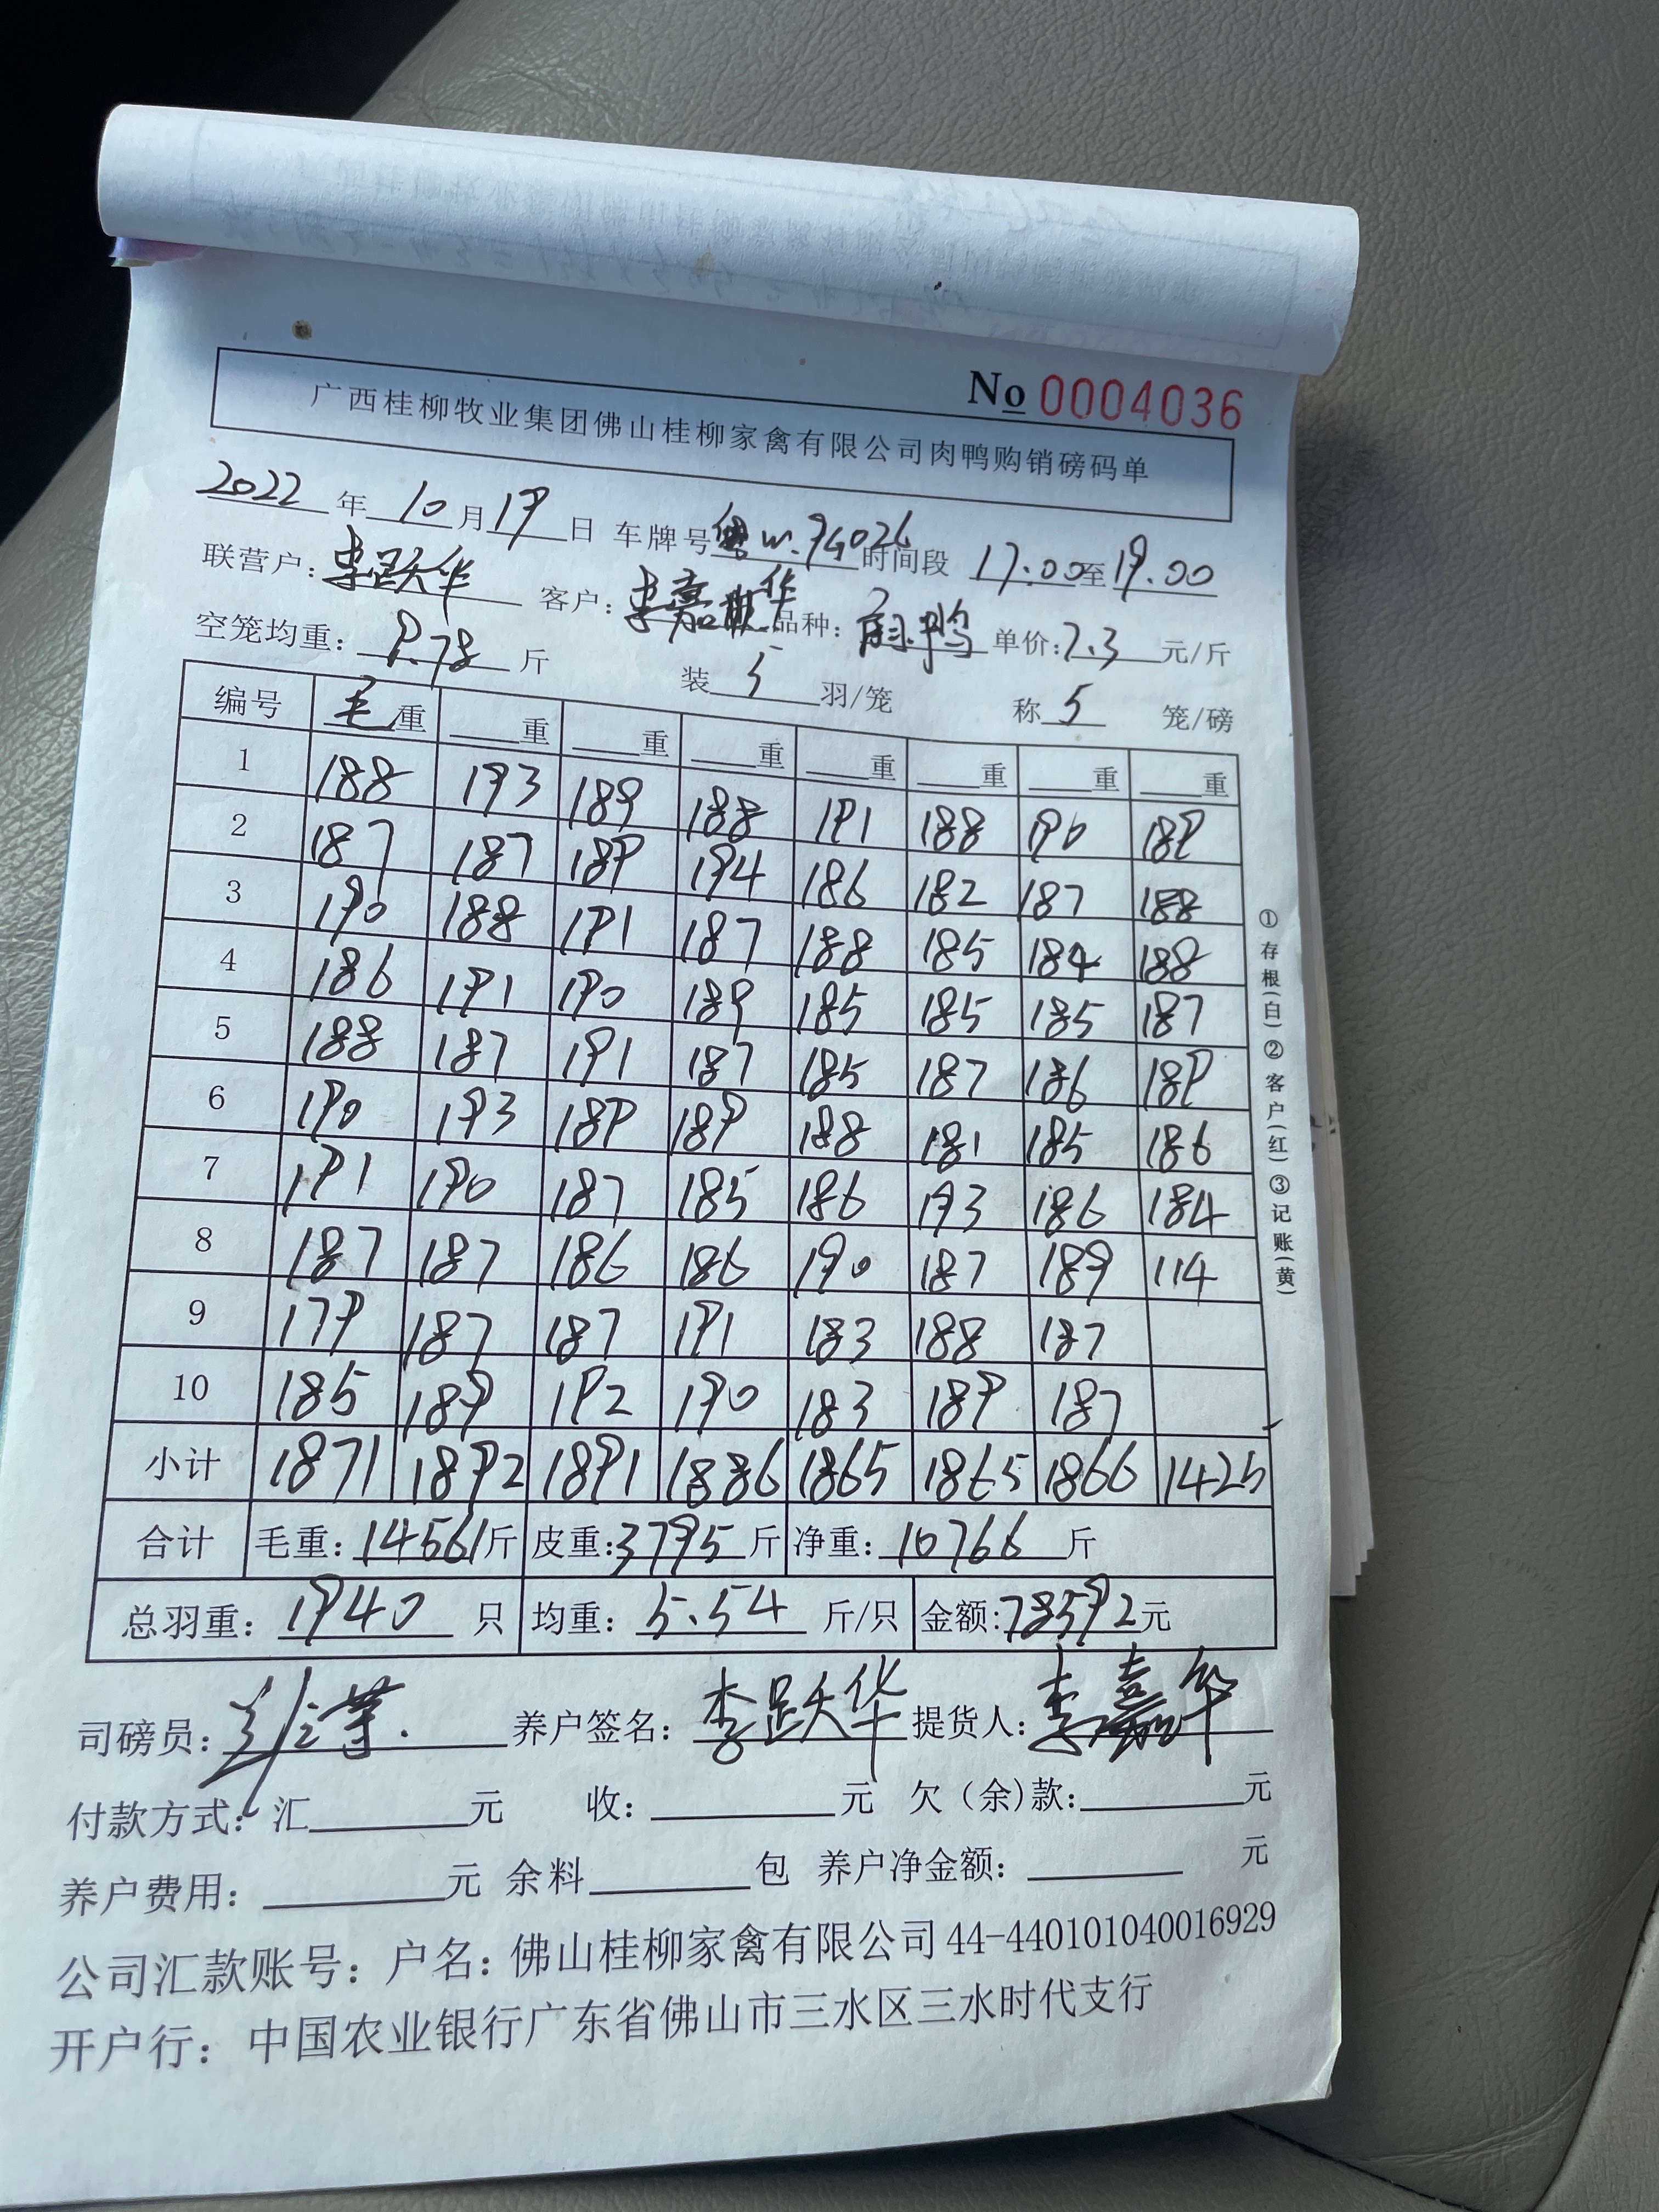 No 0004036
广西桂柳牧业集团佛山桂柳家禽有限公司肉鸭购销磅码单
2022 年 10 月 19 日 车牌号 粤W.94026 时间段 17:00 至 19.00
联营户: 李跃华 客户: 李嘉华 品种: 鸭 单价: 7.3 元/斤
空笼均重: 9.78 斤 装 5 羽/笼 称 5 笼/磅
编号 毛重 重 重 重 重 重 重 重
1 188 193 189 188 191 188 190 189
2 187 187 189 194 186 182 187 188
3 190 188 191 187 188 185 184 188
4 186 191 190 189 185 185 185 187
5 188 187 191 187 185 187 186 189
6 190 193 189 189 188 181 185 186
7 191 190 187 185 186 193 186 184
8 187 187 186 186 190 187 189 114
9 179 187 187 191 183 188 187
10 185 189 192 190 183 189 187
小计 1871 1892 1891 1886 1865 1865 1866 1425
合计 毛重: 14561 斤 皮重: 3795 斤 净重: 10766 斤
总羽重: 1940 只 均重: 5.54 斤/只 金额: 78592 元
司磅员: 养户签名: 李跃华 提货人: 李嘉华
付款方式: 汇 元 收: 元 欠(余)款: 元
养户费用: 元 余料 包 养户净金额: 元
公司汇款账号: 户名: 佛山桂柳家禽有限公司 44-440101040016929
开户行: 中国农业银行广东省佛山市三水区三水时代支行
①存根(白)②客户(红)③记账(黄)